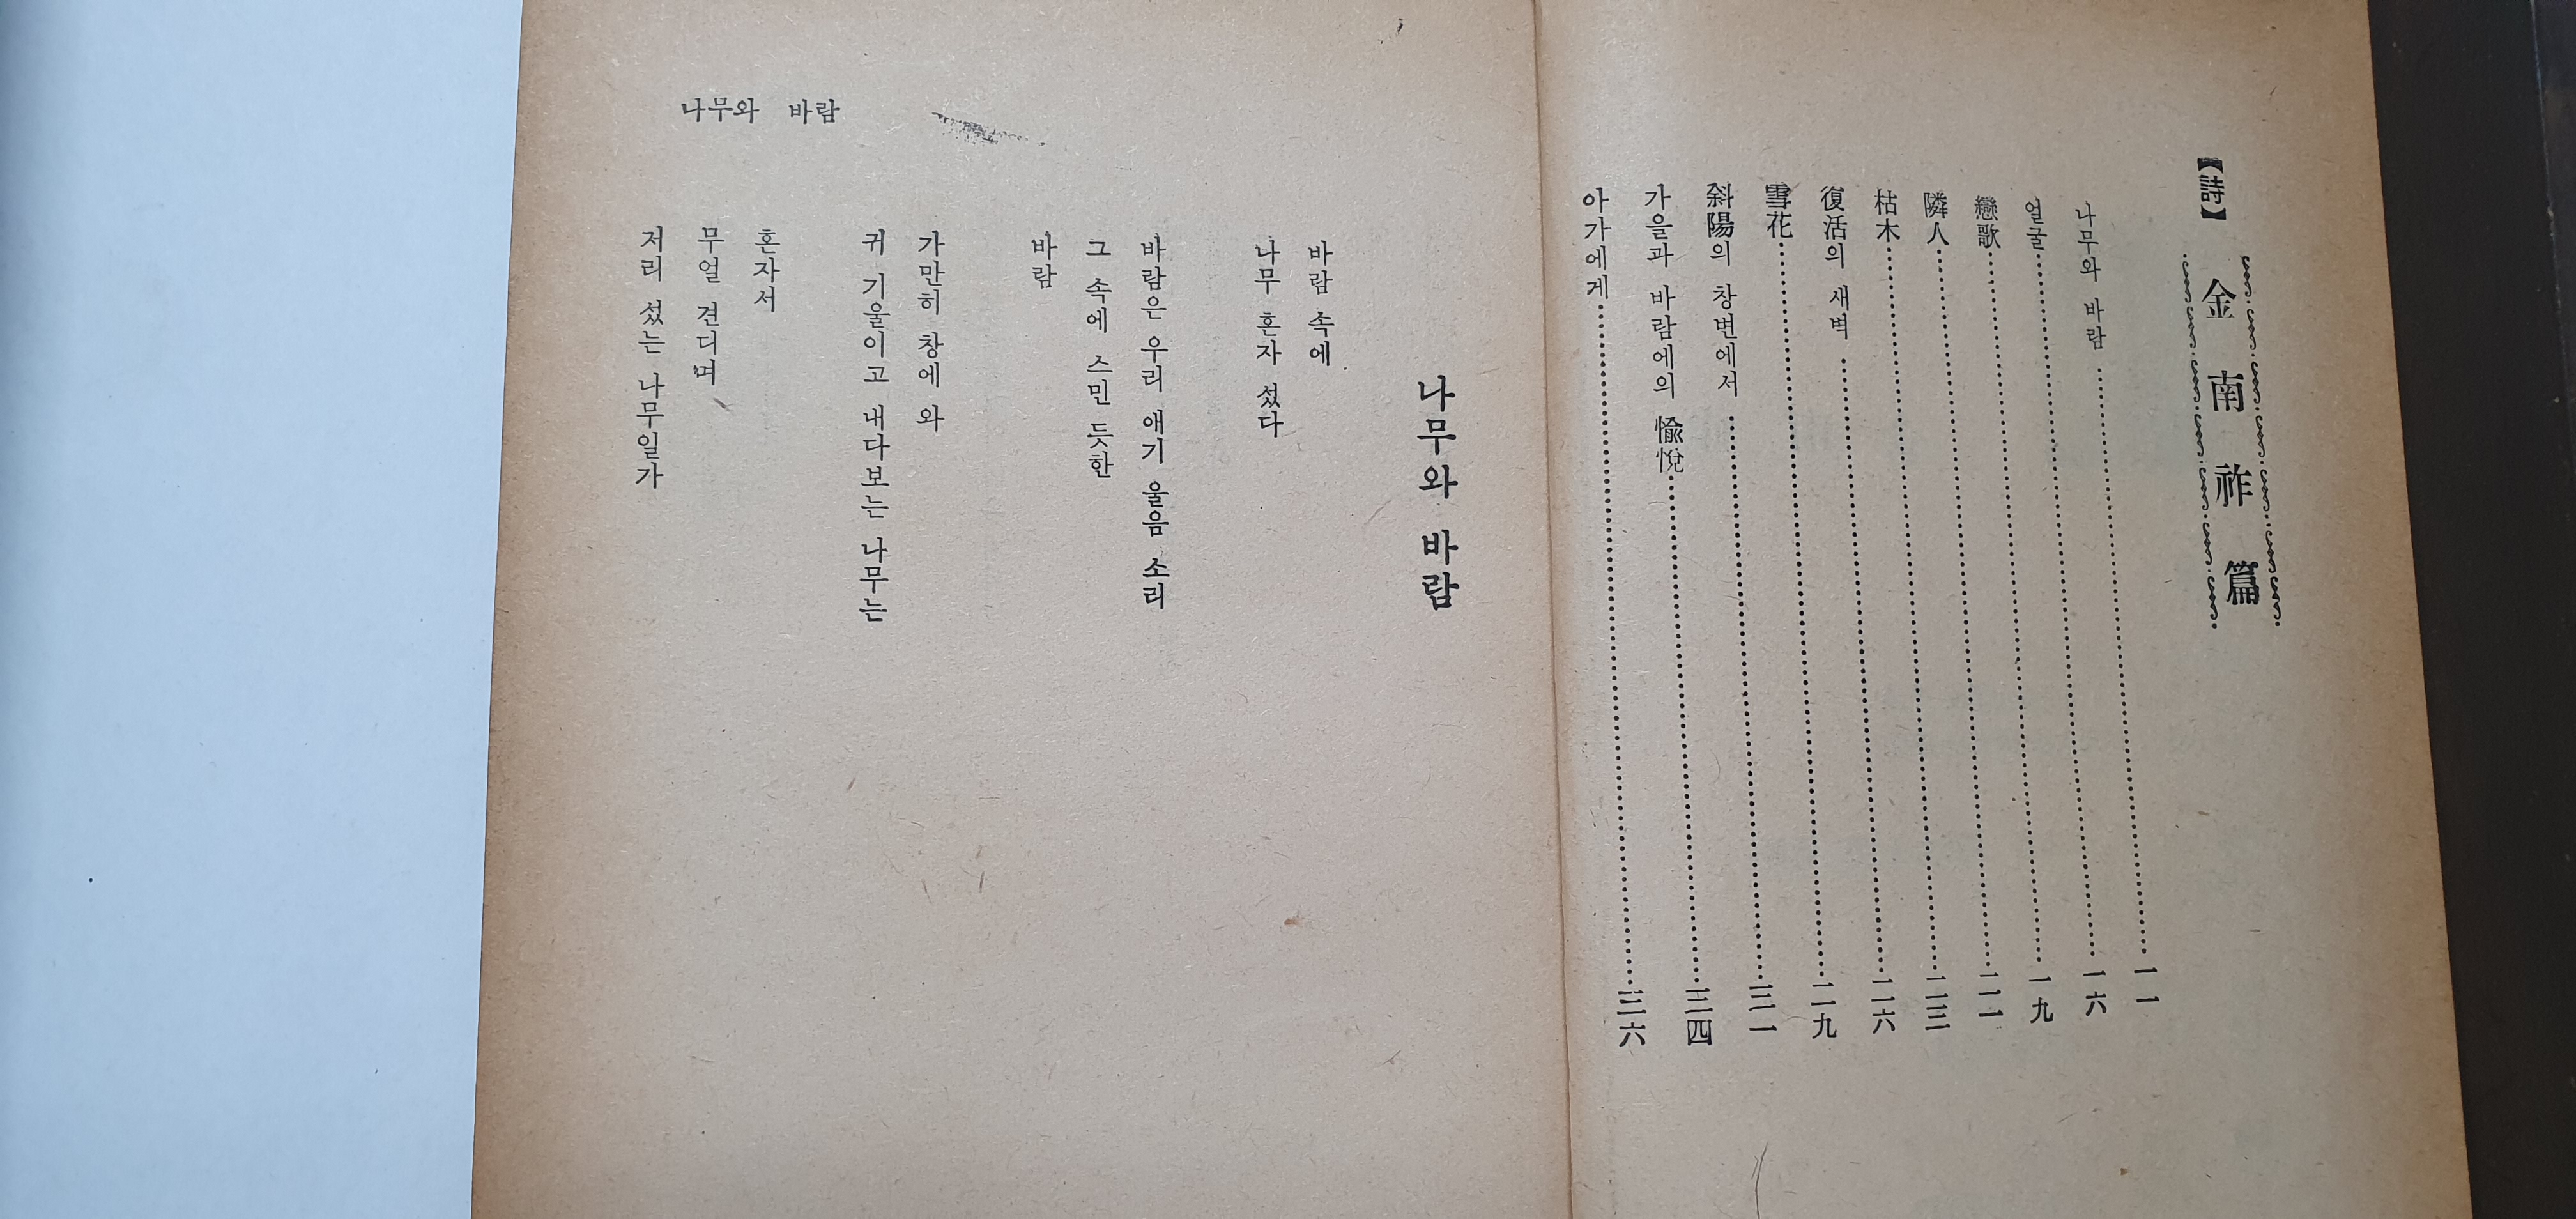 【詩】 金南祚篇
나무와 바람 一一
얼굴 一六
戀歌 一九
隣人 二一
枯木 二三
復活의 새벽 二六
雪花 二九
斜陽의 창변에서 三一
가을과 바람에의 愉悅 三四
아가에게 三六
나무와 바람
나무와 바람
바람 속에
나무 혼자 섰다
바람은 우리 얘기 울음 소리
그 속에 스민 듯한
바람
가만히 창에 와
귀 기울이고 내다보는 나무는
혼자서
무얼 견디며
저리 섰는 나무일가